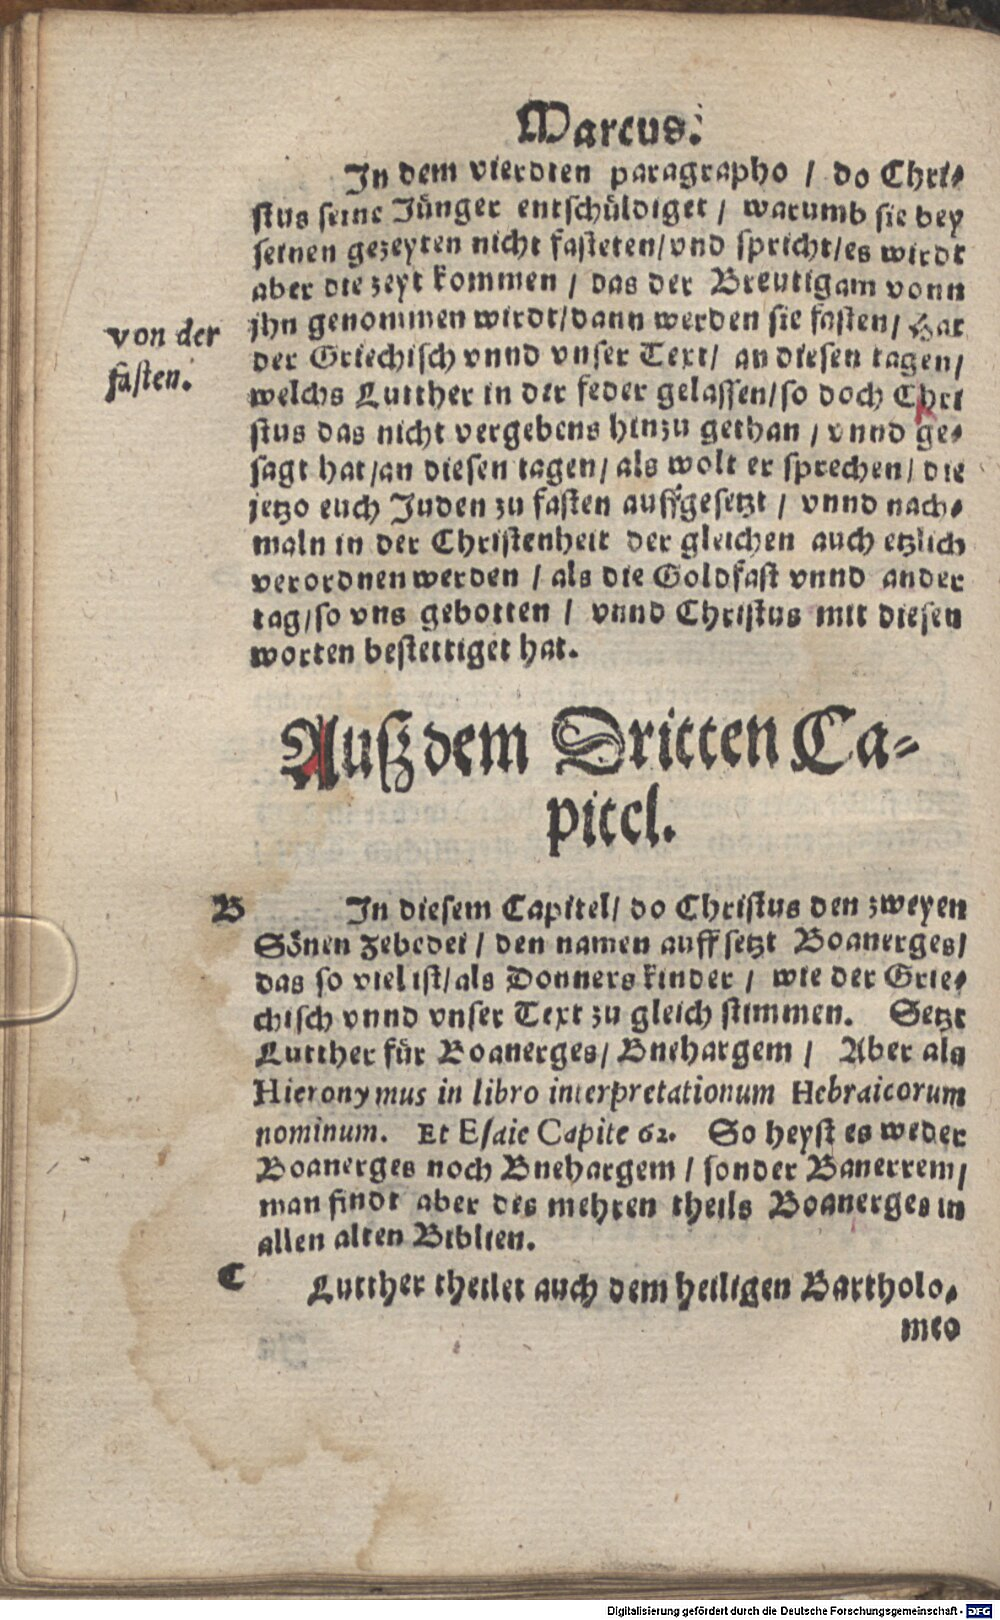 Marcus.
In dem vierdten paragrapho / do Chri-
stus seine Jünger entschüldiget / warumb sie bey
seinen gezeyten nicht fasteten/vnd spricht/es wirdt
aber die zeyt kommen / das der Breutigam vonn
von der
fasten.
jhn genommen wirdt/dann werden sie fasten/ Hat
der Griechisch vnnd vnser Text/ an diesen tagen/
welchs Lutther in der feder gelassen/so doch Chri
stus das nicht vergebens hinzu gethan / vnnd ge-
sagt hat/an diesen tagen/ als wolt er sprechen/ die
jetzo euch Juden zu fasten auffgesetzt / vnnd nach-
maln in der Christenheit der gleichen auch etzlich
verordnen werden / als die Goldfast vnnd ander
tag/so vns gebotten / vnnd Christus mit diesen
worten bestettiget hat.
Auß dem Dritten Ca-
pitel.
B
In diesem Capitel/ do Christus den zweyen
Sönen Zebedei / den namen auff setzt Boanerges/
das so viel ist/als Donners kinder / wie der Grie-
chisch vnnd vnser Text zu gleich stimmen. Setzt
Lutther für Boanerges/ Bnehargem / Aber als
Hieronymus in libro interpretationum Hebraicorum
nominum. Et Esaie Capite 62. So heyst es weder
Boanerges noch Bnehargem / sonder Banerrem/
man findt aber des mehren theils Boanerges in
allen alten Biblien.
C
Lutther theilet auch dem heiligen Bartholo-
meo
Digitalisierung gefördert durch die Deutsche Forschungsgemeinschaft - DFG